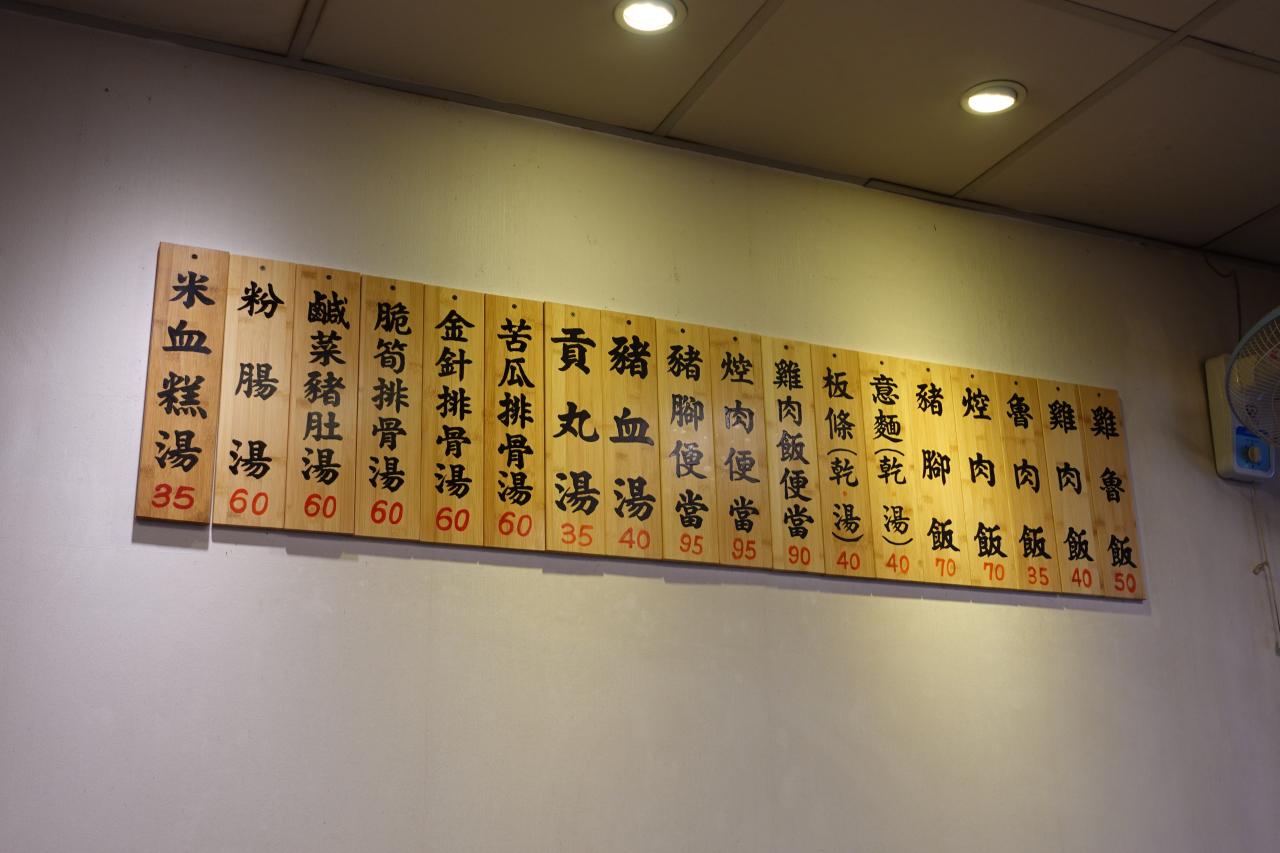 雞魯飯 50
雞肉飯 40
魯肉飯 35
焢肉飯 70
豬腳飯 70
意麵(乾·湯) 40
板條(乾·湯) 40
雞肉飯便當 90
焢肉便當 95
豬腳便當 95
豬血湯 40
貢丸湯 35
苦瓜排骨湯 60
金針排骨湯 60
脆筍排骨湯 60
鹹菜豬肚湯 60
粉腸湯 60
米血糕湯 35